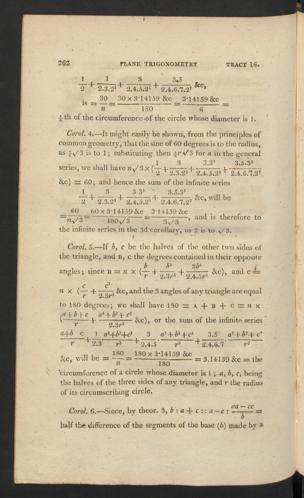 262 PLANE TRIGONOMETRY TRACT 16.
1/2 + 1/2.3.2³ + 3/2.4.5.2⁵ + 3.5/2.4.6.7.2⁷ &c,
is = 30/n = 30 × 3·14159 &c/180 = 3·14159 &c/6 =
⅙th of the circumference of the circle whose diameter is 1.
Corol. 4.—It might easily be shown, from the principles of
common geometry, that the sine of 60 degrees is to the radius,
as ½√3 is to 1; substituting then ½r√3 for a in the general
series, we shall have n√3 × (1/2 + 3/2.3.2³ + 3.3²/2.4.5.2⁵ + 3.5.3³/2.4.6.7.2⁷
&c) = 60; and hence the sum of the infinite series
1/2 + 3/2.3.2³ + 3.3²/2.4.5.2⁵ + 3.5.3³/2.4.6.7.2⁷ &c, will be
= 60/n√3 = 60 × 3·14159 &c/180√3 = 3·14159 &c/3√3, and is therefore to
the infinite series in the 3d corollary, as 2 is to √3.
Corol. 5.—If b, c be the halves of the other two sides of
the triangle, and B, C the degrees contained in their opposite
angles; since B = n × (b/r + b³/2.3r³ + 3b⁵/2.4.5r⁵ &c), and C =
n × (c/r + c³/2.3r³ &c, and the 3 angles of any triangle are equal
to 180 degrees; we shall have 180 = A + B + C = n ×
(a+b+c/r + a³+b³+c³/2.3r³ &c), or the sum of the infinite series
a+b+c/r + 1/2.3 · a³+b³+c³/r³ + 3/2.4.5 · a⁵+b⁵+c⁵/r⁵ + 3.5/2.4.6.7 · a⁷+b⁷+c⁷/r⁷
&c, will be = 180/n = 180 × 3·14159 &c/180 = 3.14159 &c = the
circumference of a circle whose diameter is 1; a, b, c, being
the halves of the three sides of any triangle, and r the radius
of its circumscribing circle.
Corol. 6.—Since, by theor. 3, b : a + c :: a − c : aa − cc/b =
half the difference of the segments of the base (b) made by a